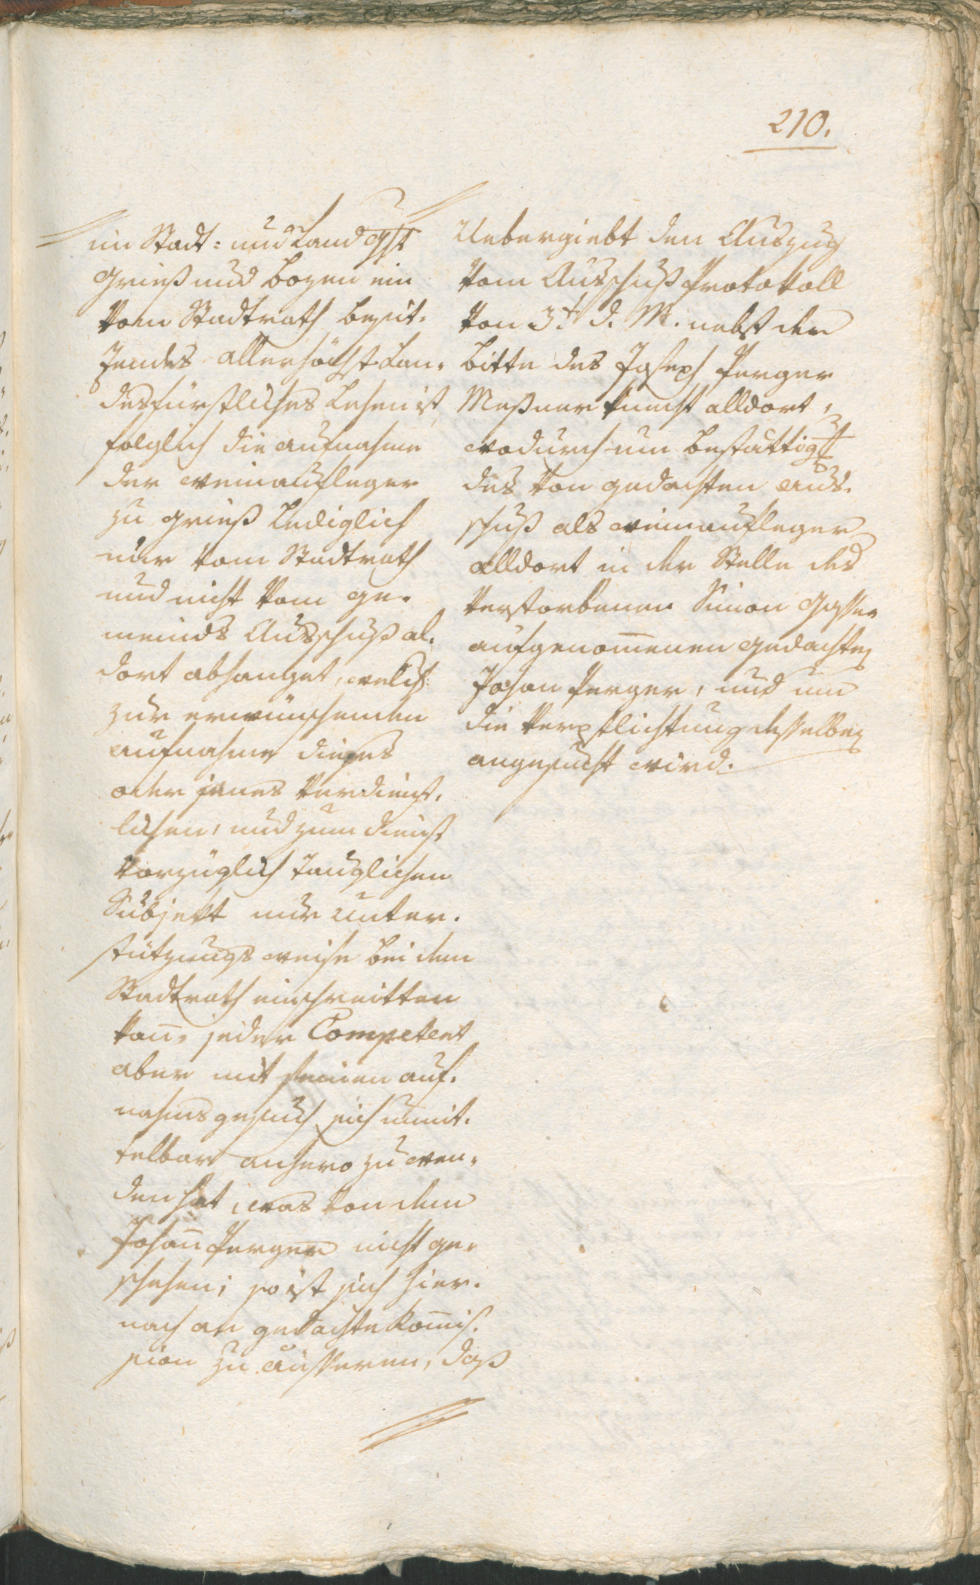 210.
im Stadt- und Landgscht
Grieß und Bozen ein
vom Stadtrath besit-
zendes allerhöchst Lan-
desfürstliches Lehen ist,
folglich die Aufnahme
der Weinaufleger
zu Grieß lediglich
nur vom Stadtrath
und nicht vom ge-
meinds Ausschuß al-
dort abhanget, welch
zur erwünschenden
Aufnahme dieses
oder jenes verdienst-
lichen, und zum Dienst
vorzüglich tauglichen
Subjekt nur unter-
stützungsweise bei dem
Stadtrath einschreitten
kan̄, jeder Competent
aber mit seinem auf-
nahmsgesuch sich unmit-
telbar anhero zu wen-
den hat, was von dem
Johan̄ Perger nicht ge-
schehen; so ist sich hier-
nach an gedachte Kom̄is-
sion zu äusseren, daß
Uebergiebt den Auszug
vom Ausschuß Protokoll
von 3t d. M. nebst der
Bitte des Joseph Perger
Meßner knecht alldort,
wodurch um Bestättigg
des von gedachten Aus-
schuß als Weinaufleger
alldort in der Stelle des
verstorbenen Simon Gasser
aufgenom̄enen gedachten
Johan Perger, und um
die Verpflichtung desselben
angesucht wird.